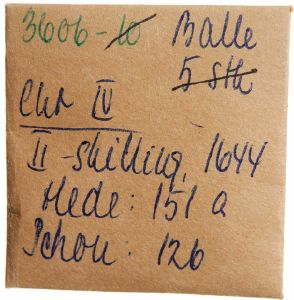 3606-10 Balle
5 stk
Chr IV
II-skilling, 1644
Hede: 151 a
Schou: 126